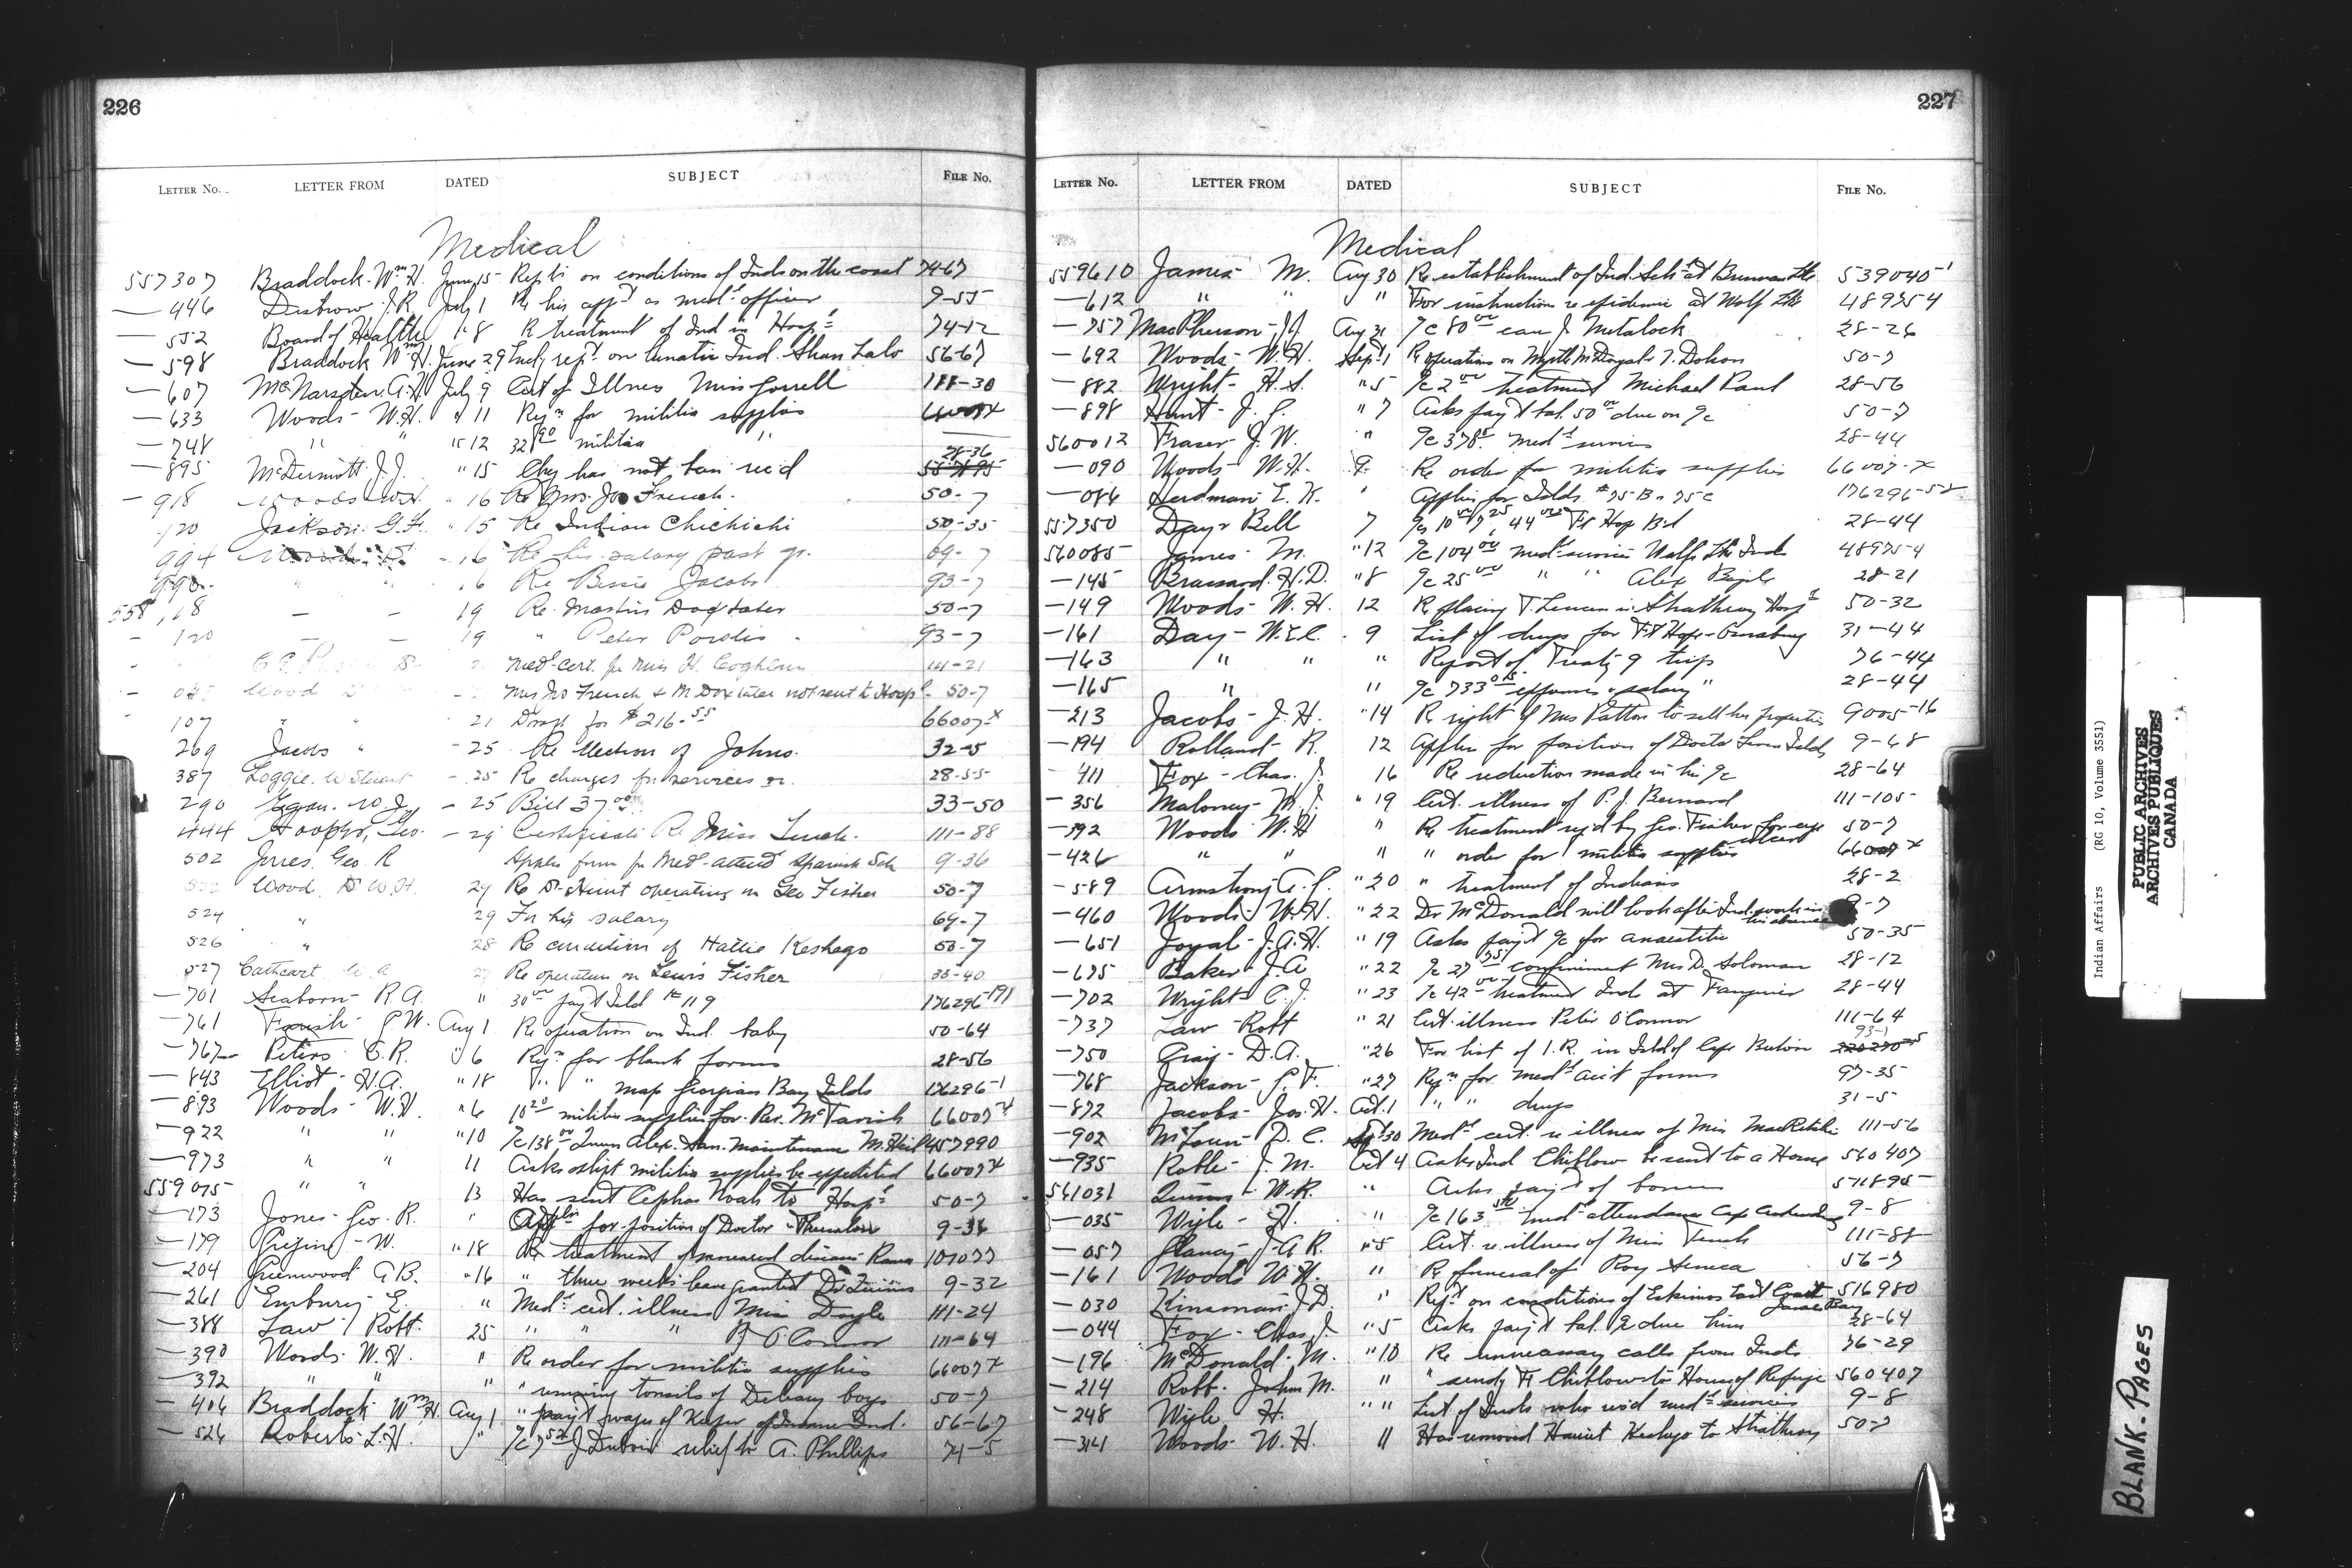 226
LETTER No. LETTER FROM DATED SUBJECT FILE No.
Medical
557307 Braddock - Wm H. June 15 Rept on conditions of Inds on the coast 74-67
— 446 Disbrow - J.R. July 1 Re his app't as med'l officer 9-55
— 552 Board of Health " 8 Re treatment of Ind in Hosp'l 74-12
— 598 Braddock Wm H. June 29 rept on lunatic Ind. 56-67
— 607 July 9 Cert of Illness Miss Gorrell
— 633 Woods - W.H. " 11 Reqn for militia supplies
— 748 " " " 12 32 90 militia "
— 895 McDermott J.J. " 15 Chq has not been rec'd 28-36
— 918 Woods W.H. " 16 Re Mrs. Jos French. 50-7
120 Jackson G.F. " 15 Re Indian Chichichi 50-35
994 - 16 Re his salary past qr. 69-7
990 " " 16 Re Bessie Jacobs 93-7
558 118 — — 19 Re Martin Doxtater 50-7
- 120 — — 19 " Peter Pordis 93-7
Med'l cert. for Miss H. Coghlan 111-21
Wood Mrs Jos French & M Doxtater not sent to Hosp'l - 50-7
107 " " - 21 Draft for $216.55 66007 x
269 Jacobs " - 25 Re election of Johns. 32-5
387 Loggie. W Stewart - 25 Re charges for services 28-55
290 Egan. W.J. - 25 Bill 37 00 33-50
444 Hooper, Geo. - 29 Certificate Re Miss 111-88
502 Jones. Geo. R Applies form for Med'l attend Spanish Sch 9-36
Wood. Dr W.H. 29 Re Dr Hunt operating on Geo Fisher 50-7
524 " 29 For his salary 69-7
526 " 28 Re condition of Hattie Keshego 50-7
527 Cathcart 27 Re operation on Lewis Fisher 30-40
— 701 Seaborn - R.A. " 30 00 pay't Isld No 119 176296-191
— 761 P.W. Aug 1 Re operation on Ind. baby 50-64
— 767 Peters - O.R. " 6 Reqn for blank forms 28-56
— 843 Elliot - H.A. " 18 " " map Georgian Bay Islds 176296-1
— 893 Woods - W.H. " 6 10 20 militia supplies for Rev. McTavish 66007 x
— 922 " " " 10 a/c 138 00 Queen Alex. San. Maintenance 457990
— 973 " " 11 Asks shipt militia supplies be expedited 66007 x
559075 " " 13 Has sent Cephas Noah to Hosp'l 50-7
— 173 Jones - Geo. R. " Appln for position of Doctor - Thessalon 9-36
— 179 W. " 18 Re treatment of venereal disease - Rama 107077
— 204 Greenwood A.B. " 16 " three weeks leave granted Dr Quinn 9-32
— 261 Embury E. " Med'l cert. illness Miss Doyle 111-24
— 388 Law / Robt. 25 " " " P. O'Connor 111-64
— 390 Woods - W.H. " Re order for militia supplies 66007 x
— 392 " " " " removing tonsils of Delaney boys 50-7
— 406 Braddock Wm H. Aug 1 " pay't wages of Keeper of Insane Ind. 56-67
— 526 Roberts L.H. " a/c 7 50 J Dubois relief to A. Phillips 74-5
227
LETTER No. LETTER FROM DATED SUBJECT FILE No.
Medical
559610 James - M. Aug 30 Re establishment of Ind. Sch'l at 539040-1
— 612 " " " For instructions re epidemic at Wolf Lke 48975-4
— 757 MacPherson - J.J. Aug 31 a/c 80 00 care J. Metalock 28-26
— 692 Woods - W.H. Sept 1 Re operations on Myrtle McDougal & T. Dolson 50-7
— 882 Wright - H.S. " 5 a/c 2 00 treatment Michael Paul 28-56
— 898 Hunt - J.C. " 7 Asks pay't bal. 50 00 due on a/c 50-7
560012 Fraser - J.W. " a/c 378 med'l services 28-44
— 090 Woods - W.H. 9 Re order for militia supplies 66007-x
— 086 Herdman E.K. " Applies for Islds #75-B & 75c 176296-52
557350 Day & Bell 7 a/cs 10 00 7 25, 44 00 Ft Hope Bd 28-44
560085 James - M. " 12 a/c 104 00 med'l services Wolf Lke Inds 48975-4
— 145 Brassard. H.D. " 8 a/c 25 00 " " Alex 28-21
— 149 Woods - W.H. 12 Re placing T. in Strathroy Hosp'l 50-32
— 161 Day - W.E.C. 9 List of drugs for Ft Hope - Osnaburg 31-44
— 163 " " " Report of Treaty 9 trip 76-44
— 165 " " a/c 733 expenses & salary " 28-44
— 213 Jacobs - J.H. " 14 Re right of Mrs Patton to sell her properties 9005-16
— 194 Rolland - R. 12 Applies for position of Doctor Islds 9-68
— 411 Fox - Chas. J. 16 Re reduction made in his a/c 28-64
— 356 Maloney - M.J. " 19 Cert. illness of P.J. Bernard 111-105
— 392 Woods W.H " Re treatment req'd by Geo. Fisher for eye 50-7
— 426 " " " " order for militia supplies 66007 x
— 589 Armstrong A.P. " 20 " treatment of Indians 28-2
— 460 Woods - W.H. " 22 Dr. McDonald will look after Ind. work in his absence 9-7
— 651 Joyal - J.A.H. " 19 Asks pay't a/c for anaesthetic 50-35
— 675 Baker - J.A " 22 a/c 27 confinement Mrs D. Soloman 28-12
— 702 Wright - C.J. " 23 a/c 42 00 treatment Inds at Fauquier 28-44
— 737 Law - Robt " 21 Cert. illness Peter O'Connor 111-64
— 750 Craig - D.A. " 26 For list of I.R. in Isld of Cape Breton 93-1
— 768 Jackson - G.F. " 27 Reqn for med'l acct forms 97-35
— 872 Jacobs - Jos. H. Oct. 1 " " drugs 31-5
— 902 D.C. Sept 30 Med'l cert. re illness of Miss MacRitchie 111-56
— 935 Robb - J.M. Oct 4 Asks Ind Chiblow be sent to a Home 560407
561031 Quinn - W.R. " Asks pay't of bonus 571895
— 035 Wyle - H. " a/c 163 50 med'l attendance Cape Croker Inds 9-8
— 057 Clancy - J.A.R. " 5 Cert. re illness of Miss 111-88
— 161 Woods W.H. " Re funeral of Roy Seneca 56-7
— 030 Kinsman - J.D. " Rept on conditions of Eskimos East Coast James Bay 516980
— 044 Fox - Chas. J. " 5 Asks pay't bal. a/c due him 28-64
— 196 McDonald - M. " 10 Re unnecessary calls from Inds 76-29
— 214 Robb. John M. " " sendg Chiblow to House of Refuge 560407
— 248 Wyle H. " " List of Inds who rec'd med'l services 9-8
— 314 Woods - W.H. 11 Has removed Harriet Keshego to Strathroy 50-7
Indian Affairs (RG 10, Volume 3551)
PUBLIC ARCHIVES
ARCHIVES PUBLIQUES
CANADA
BLANK - PAGES